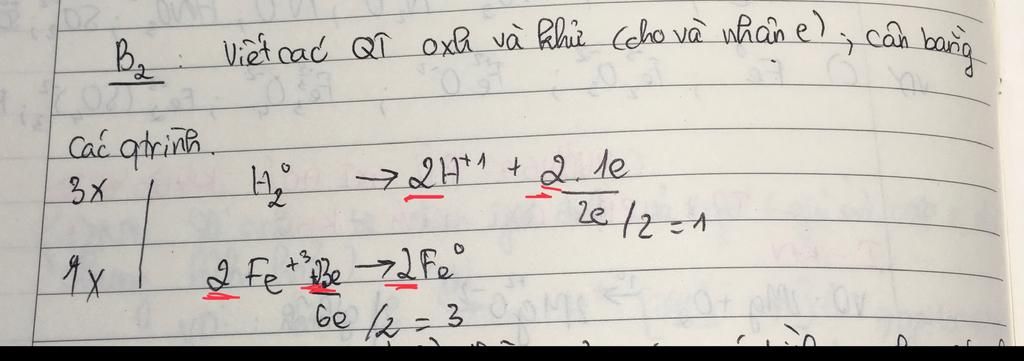 B2: Viết các QT oxh và khử (cho và nhận e), cân bằng
các qtrình.
3x H2⁰ → 2H⁺¹ + 2.1e
2e/2 = 1
1x 2Fe⁺³ +3e → 2Fe⁰
6e/2 = 3